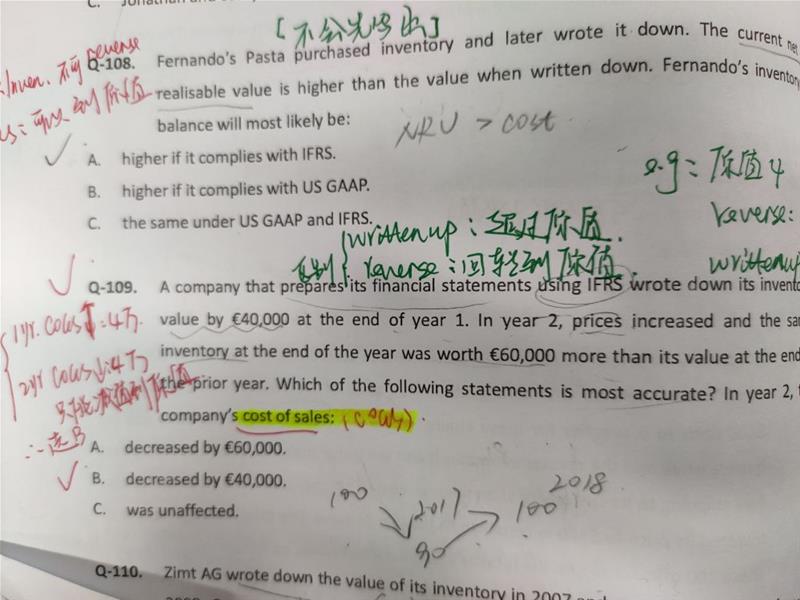 C.
[不分先后出]
Q-108. Fernando's Pasta purchased inventory and later wrote it down. The current net
realisable value is higher than the value when written down. Fernando's inventory
balance will most likely be:
不可 reverse
NRU > cost
A. higher if it complies with IFRS.
B. higher if it complies with US GAAP.
C. the same under US GAAP and IFRS.
e.g: 原值4
reverse:
written up
区别 { written up: 超过原值.
reverse: 回转到原值.
Q-109. A company that prepares its financial statements using IFRS wrote down its invent
value by €40,000 at the end of year 1. In year 2, prices increased and the sa
inventory at the end of the year was worth €60,000 more than its value at the end
the prior year. Which of the following statements is most accurate? In year 2,
company's cost of sales: (COGS)
1yr. COGS↑: 4万.
2yr COGS↓: 4万
∴选B
A. decreased by €60,000.
B. decreased by €40,000.
C. was unaffected.
100 2017 100 2018
90
Q-110. Zimt AG wrote down the value of its inventory in 2007